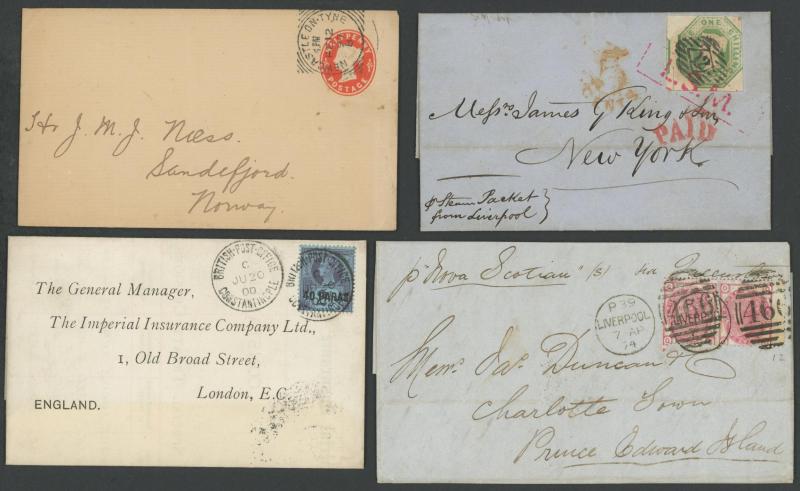 CASTLE-ON-TYNE
4 PM
12
PENNY
POSTAGE
Hr J. M. J. Næss.
Sandefjord.
Norway.
ONE SHILLING
PAID
Messrs James G King & Sons
New York
p Steam Packet
from Liverpool
BRITISH-POST-OFFICE
C
JU 20
00
CONSTANTINOPLE
BRITISH-POST-OFFICE
CONSTANTINOPLE
40 PARAS
The General Manager,
The Imperial Insurance Company Ltd.,
1, Old Broad Street,
London, E.C.
ENGLAND.
p "Nova Scotian" (s) via
P 39
LIVERPOOL
7 AP
74
LIVERPOOL
466
12
Messrs Jas. Duncan & Co
Charlotte Town
Prince Edward Island